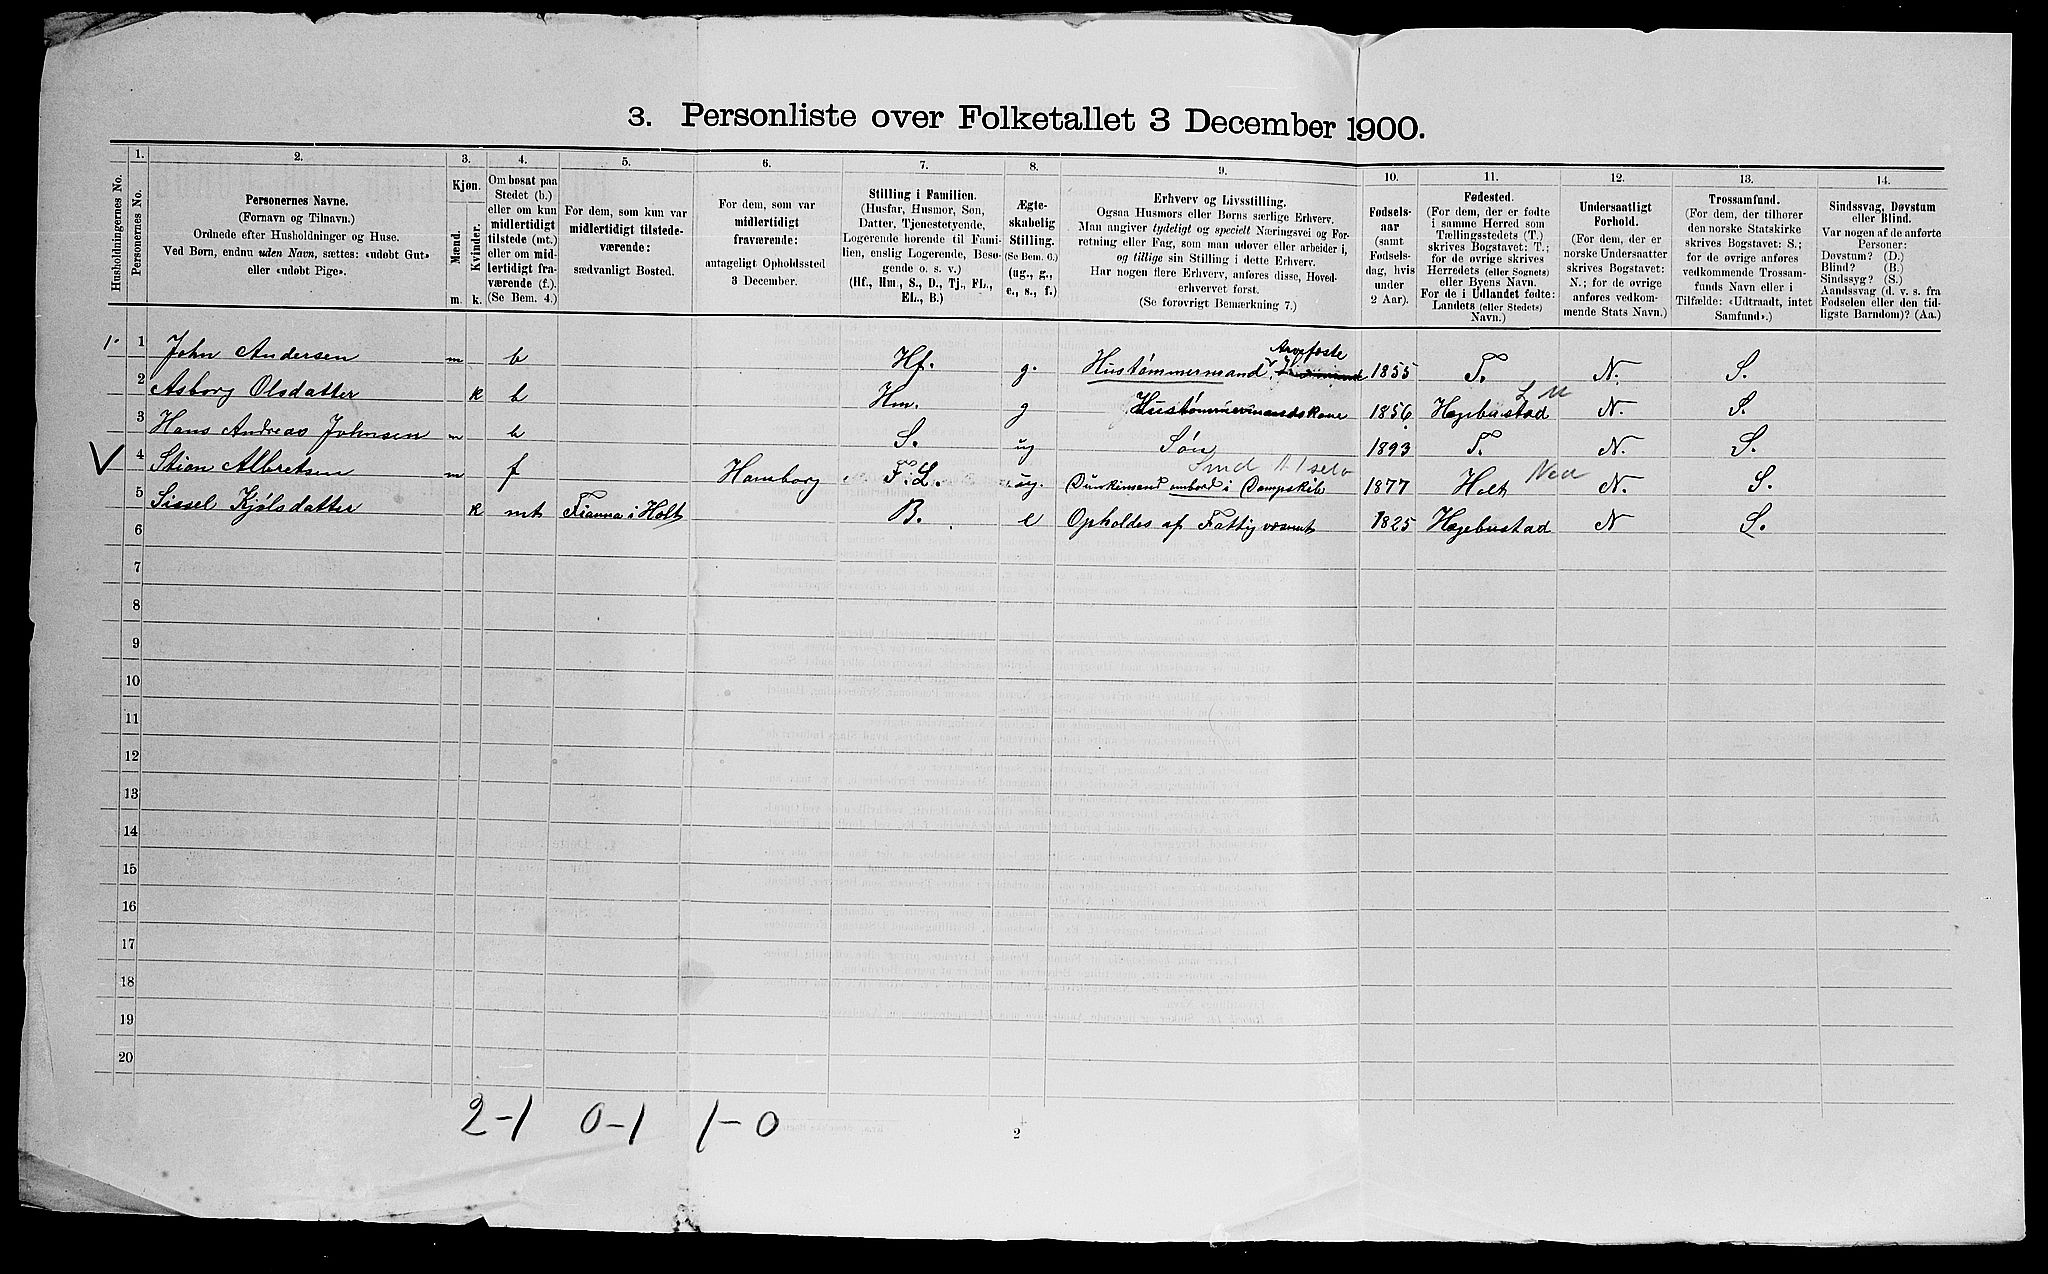 3. Personliste over Folketallet 3 December 1900.
Husholdningernes No.
1.
Personernes No.
2.
Personernes Navne.
(Fornavn og Tilnavn.)
Ordnede efter Husholdninger og Huse.
Ved Børn, endnu uden Navn, sættes: «udøbt Gut»
eller «udøbt Pige».
3.
Kjøn.
Mænd.
Kvinder.
m. k.
4.
Om bosat paa
Stedet (b.)
eller om kun
midlertidigt
tilstede (mt.)
eller om mid-
lertidigt fra-
værende (f.).
(Se Bem. 4.)
5.
For dem, som kun var
midlertidigt tilstede-
værende:
sædvanligt Bosted.
6.
For dem, som var
midlertidigt
fraværende:
antageligt Opholdssted
3 December.
7.
Stilling i Familien.
(Husfar, Husmor, Søn,
Datter, Tjenestetyende,
Logerende hørende til Fami-
lien, enslig Logerende, Besø-
gende o. s. v.)
(Hf., Hm., S., D., Tj., FL.,
EL., B.)
8.
Ægte-
skabelig
Stilling.
(Se Bem. 6.)
(ug., g.,
e., s., f.)
9.
Erhverv og Livsstilling.
Ogsaa Husmors eller Børns særlige Erhverv.
Man angiver tydeligt og specielt Næringsvei og For-
retning eller Fag, som man udøver eller arbeider i,
og tillige sin Stilling i dette Erhverv.
Har nogen flere Erhverv, anføres disse, Hoved-
erhvervet først.
(Se forøvrigt Bemærkning 7.)
10.
Fødsels-
aar
(samt
Fødsels-
dag, hvis
under
2 Aar).
11.
Fødested.
(For dem, der er fødte
i samme Herred som
Tællingsstedets (T.)
skrives Bogstavet: T.;
for de øvrige skrives
Herredets (eller Sognets)
eller Byens Navn.
For de i Udlandet fødte:
Landets (eller Stedets)
Navn.)
12.
Undersaatligt
Forhold.
(For dem, der er
norske Undersaatter
skrives Bogstavet:
N.; for de øvrige
anføres vedkom-
mende Stats Navn.)
13.
Trossamfund.
(For dem, der tilhører
den norske Statskirke
skrives Bogstavet: S.;
for de øvrige anføres
vedkommende Trossam-
funds Navn eller i
Tilfælde: «Udtraadt, intet
Samfund».)
14.
Sindssvag, Døvstum
eller Blind.
Var nogen af de anførte
Personer:
Døvstum? (D.)
Blind? (B.)
Sindssyg? (S.)
Aandssvag (d. v. s. fra
Fødselen eller den tid-
ligste Barndom)? (Aa.)
Arvefæste
1. 1 John Andersen m b Hf. g. Hustømmermand, 1855 T. N. S.
2 Asborg Olsdatter k b Hm. g Hustømmermandskone 1856 Hægebustad L M N. S.
3 Hans Andreas Johnsen m b S. ug Søn 1893 T. N. S.
V 4 Stian Albretsen m f Hamborg F. L. ug. Dunkimand ombord i Dampskib 1877 Holt Ned N. S.
5 Sissel Kjølsdatter k mt Fianna i Holt B. e Opholdes af Fattigvæsnet 1825 Hægebustad N S.
6
7
8
9
10
11
12
13
14
15
16
17
18
19
20
2-1 0-1 1-0
2